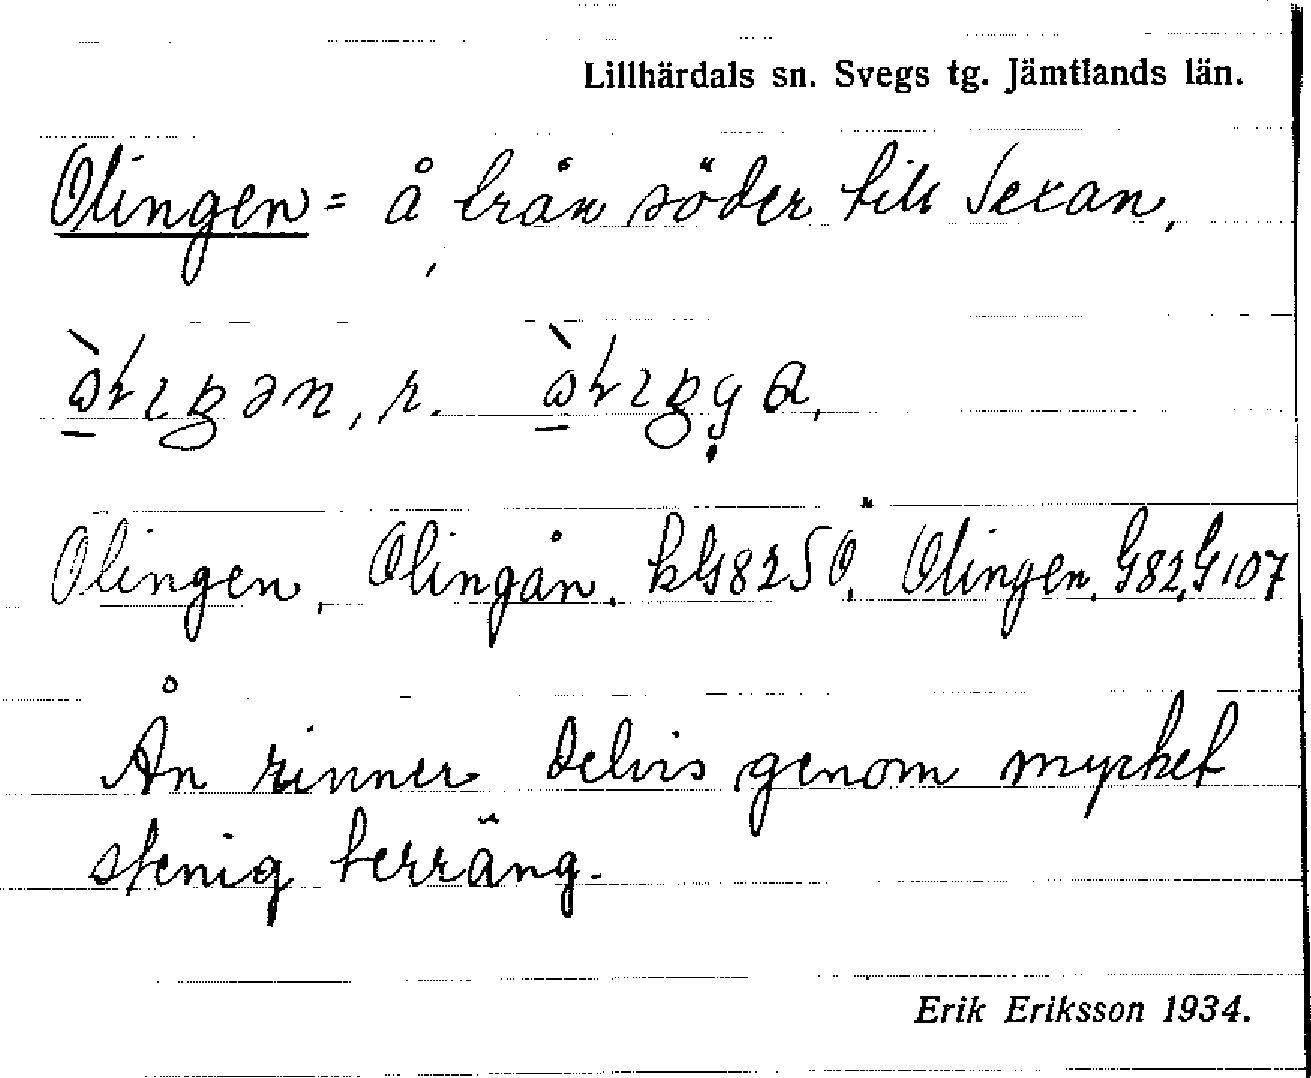 Lillhärdals sn. Svegs tg. Jämtlands län.
Olingen = å från söder till Sexan,
Olingen, Olingån. kG8250. Olingen. G82, G107
Ån rinner delvis genom mycket
stenig terräng.
Erik Eriksson 1934.